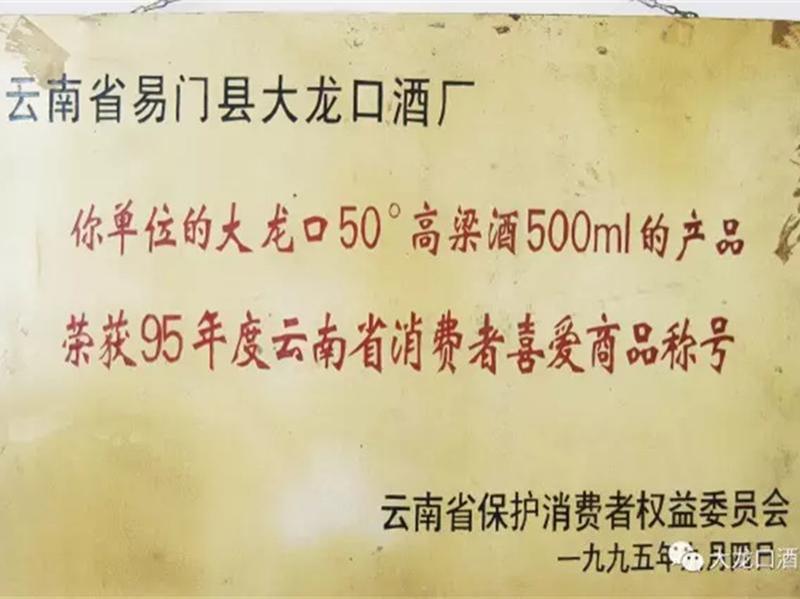 云南省易门县大龙口酒厂
你单位的大龙口50°高梁酒500ml的产品
荣获95年度云南省消费者喜爱商品称号
云南省保护消费者权益委员会
一九九五年 月四日
大龙口酒